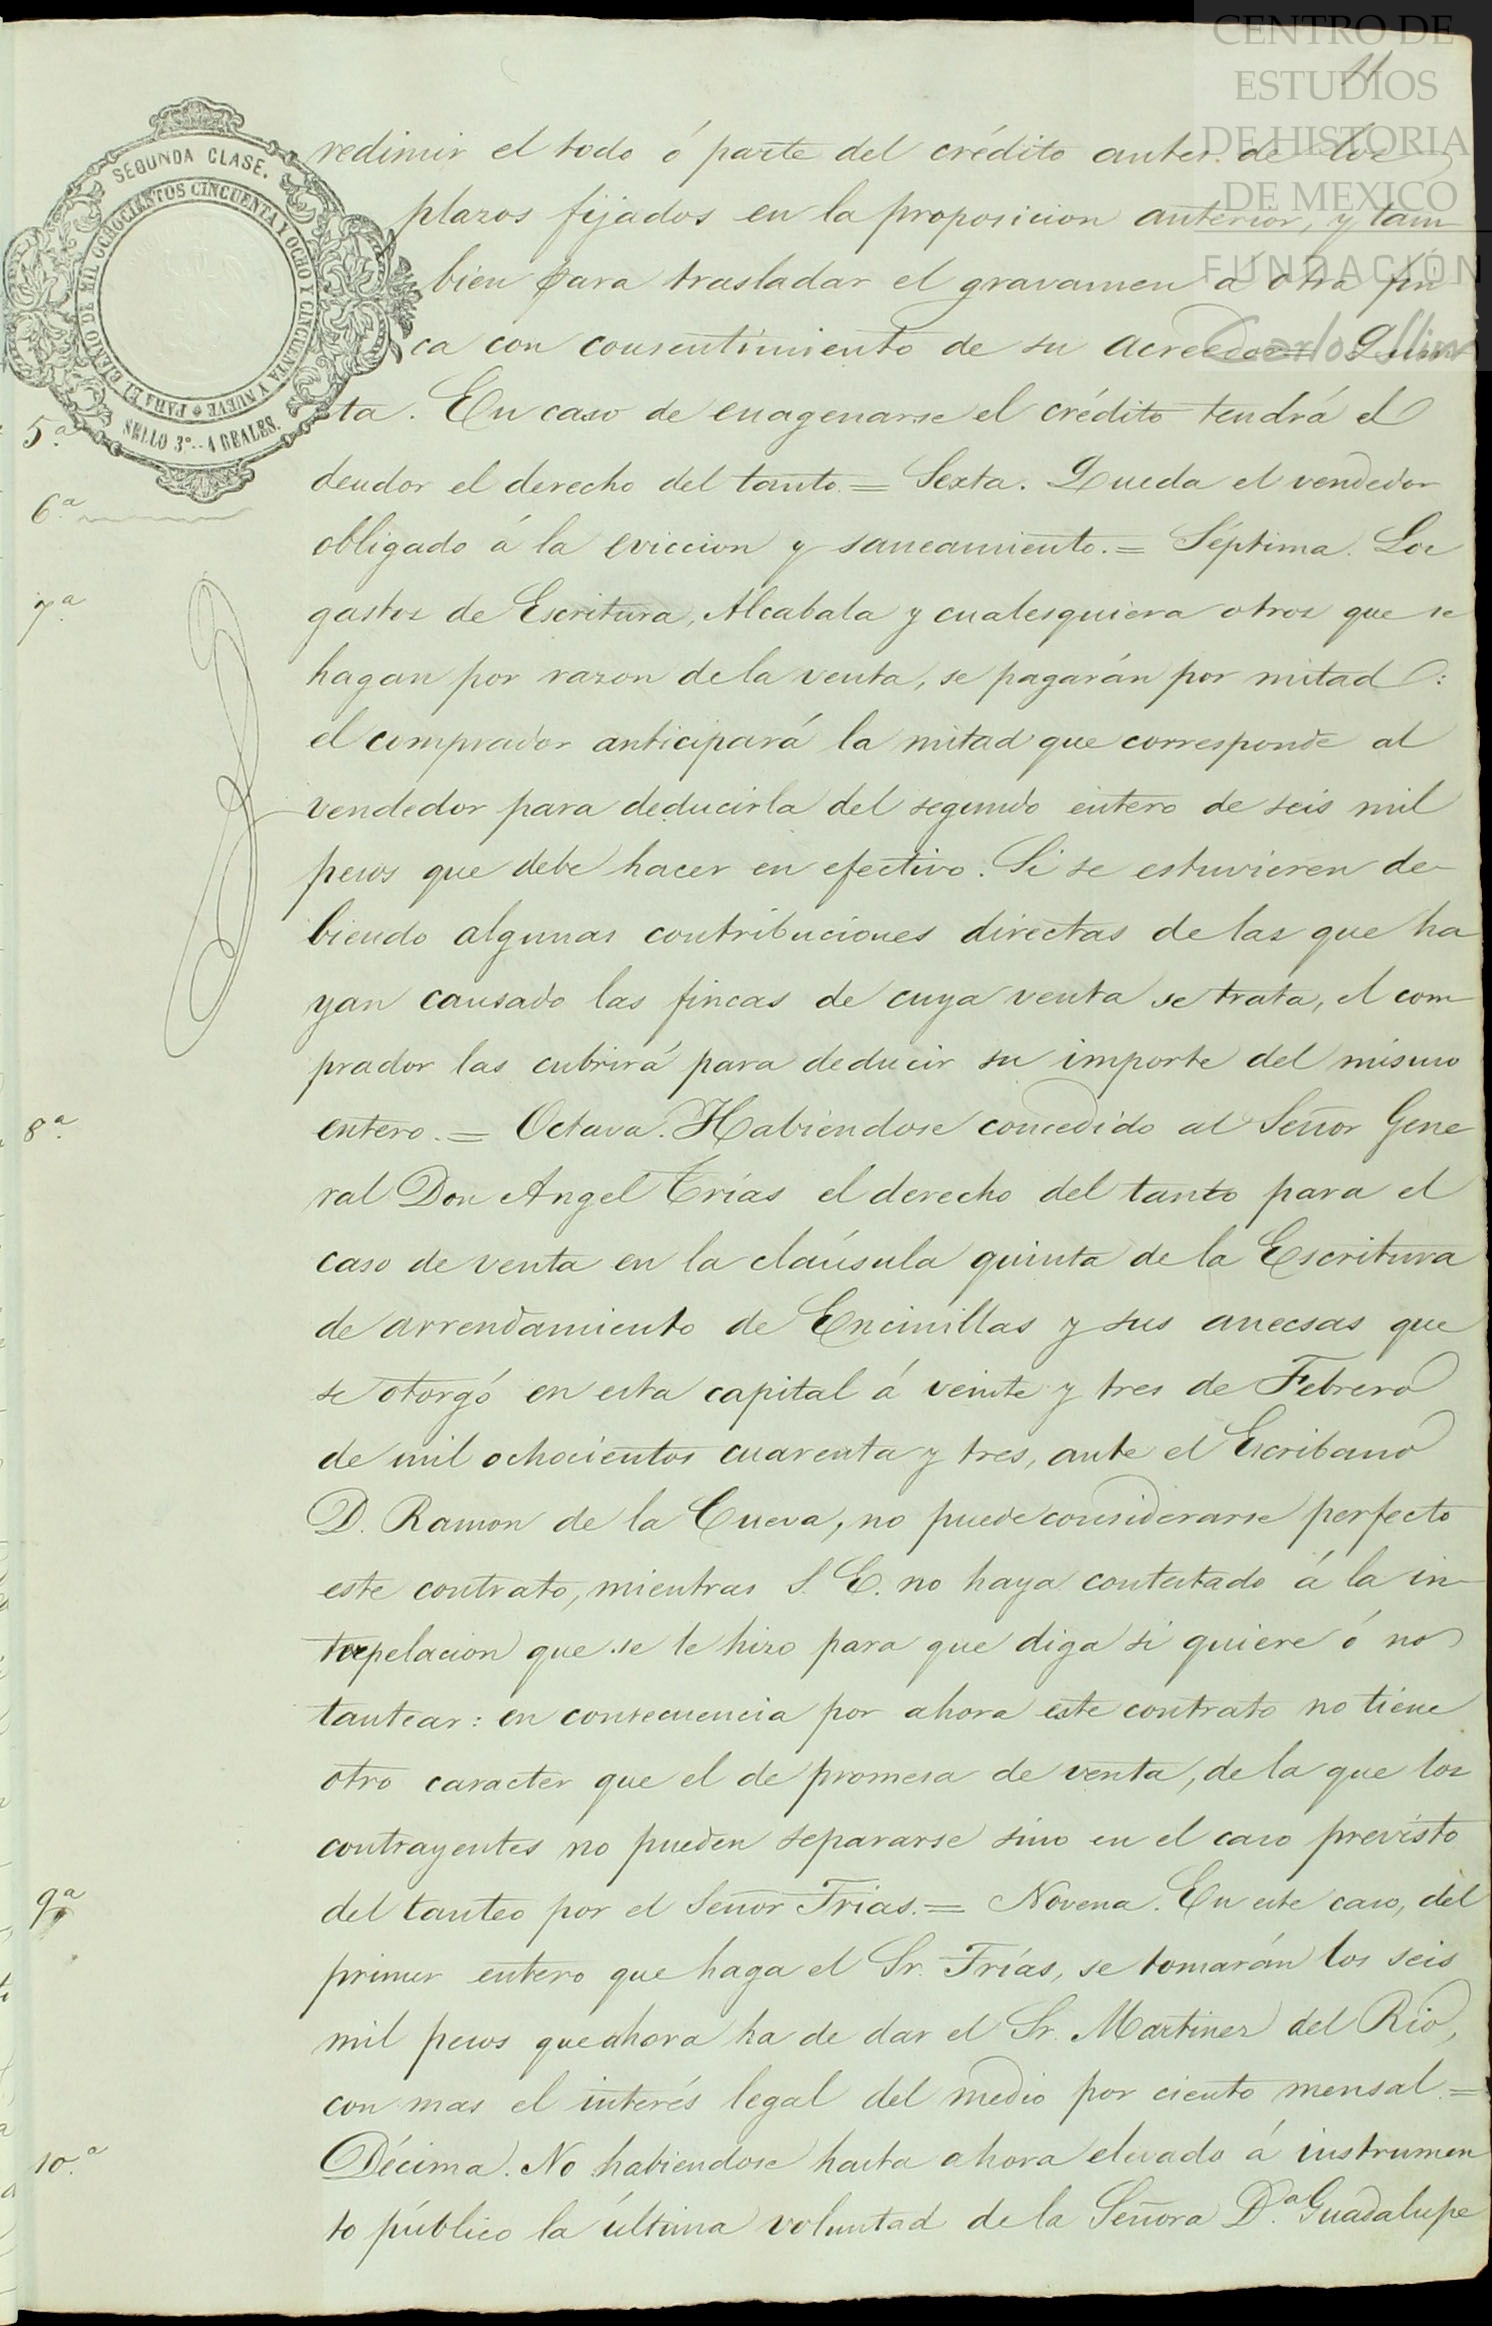 CENTRO DE
ESTUDIOS
DE HISTORIA
DE MEXICO
FUNDACIÓN
Carlos Slim
11
SEGUNDA CLASE.
PARA EL BIENIO DE MIL OCHOCIENTOS CINCUENTA Y OCHO Y CINCUENTA Y NUEVE
SELLO 3º.- 4 REALES.
redimir el todo ó parte del crédito antes de los
plazos fijados en la proposicion anterior, y tam-
bien para trasladar el gravamen a otra fin
ca con consentimiento de su acreedor = Quin-
5.ª
ta. En caso de enagenarse el crédito tendrá el
6.ª
deudor el derecho del tanto = Sexta. Queda el vendedor
obligado á la eviccion y saneamiento. = Séptima. Los
7.ª
gastos de Escritura, Alcabala y cualesquiera otros que se
hagan por razon de la venta, se pagarán por mitad:
el comprador anticipará la mitad que corresponde al
vendedor para deducirla del segundo entero de seis mil
pesos que debe hacer en efectivo. Si se estuvieren de-
biendo algunas contribuciones directas de las que ha
yan causado las fincas de cuya venta se trata, el com-
prador las cubrirá para deducir su importe del mismo
8.ª
entero. = Octava. Habiendose concedido al Señor Gene
ral Don Angel Trías el derecho del tanto para el
caso de venta en la claúsula quinta de la Escritura
de arrendamiento de Encinillas y sus anecsas que
se otorgó en esta capital á veinte y tres de Febrero
de mil ochocientos cuarenta y tres, ante el Escribano
D. Ramon de la Cueva, no puede considerarse perfecto
este contrato, mientras S. E. no haya contestado á la in-
terpelacion que se le hizo para que diga si quiere ó no
tantear: en consecuencia por ahora este contrato no tiene
otro caracter que el de promesa de venta, de la que los
contrayentes no pueden separarse sino en el caso previsto
9.ª
del tanteo por el Señor Trias. = Novena. En este caso, del
primer entero que haga el Sr. Trías, se tomarán los seis
mil pesos que ahora ha de dar el Sr. Martinez del Rio,
con mas el interés legal del medio por ciento mensal. =
10.ª
Décima. No habiendose hasta ahora elevado á instrumen
to público la última voluntad de la Señora D.ª Guadalupe